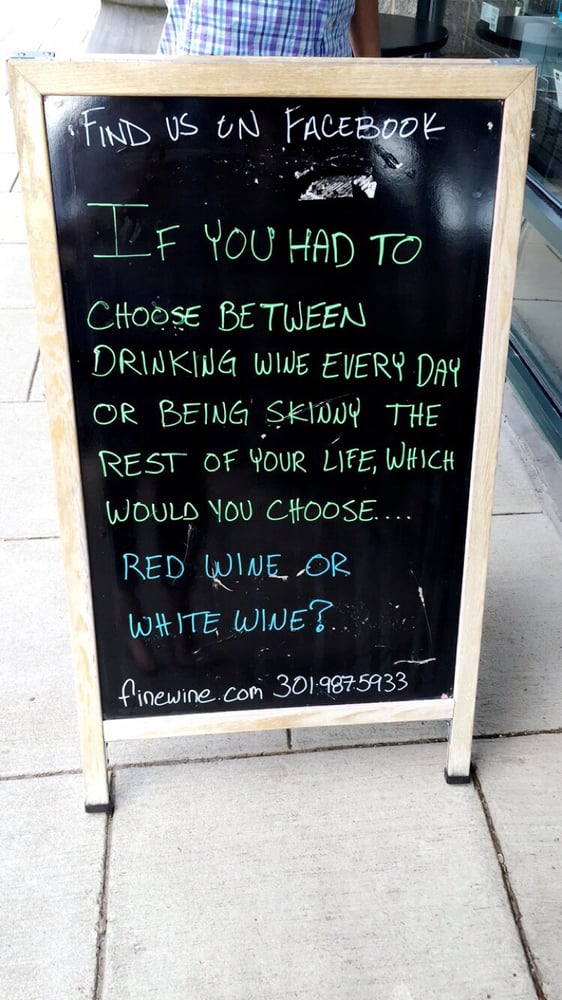 FIND US ON FACEBOOK
IF YOU HAD TO
CHOOSE BETWEEN
DRINKING WINE EVERY DAY
OR BEING SKINNY THE
REST OF YOUR LIFE, WHICH
WOULD YOU CHOOSE....
RED WINE OR
WHITE WINE?
finewine.com 301.987.5933